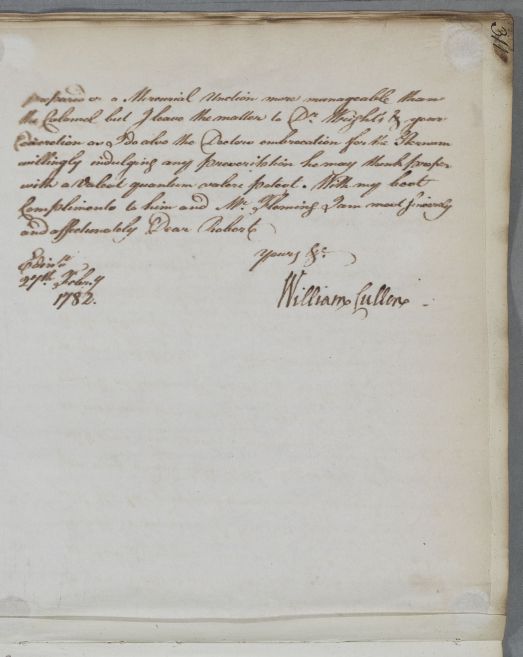 311
prepared or a Mercurial Unction more manageable than
the Calomel but I leave the matter to Dr. Wright's & your
discretion as I do also the Doctors embrocation for the Sternum
willingly indulging any prescription he may think proper
with a valeat quantum valere potest. With my best
Compliments to him and Mr. Fleming I am most sincerely
and affectionately Dear Robert
Yours &c.
Edinr.
27th. Febry
1782.
William Cullen